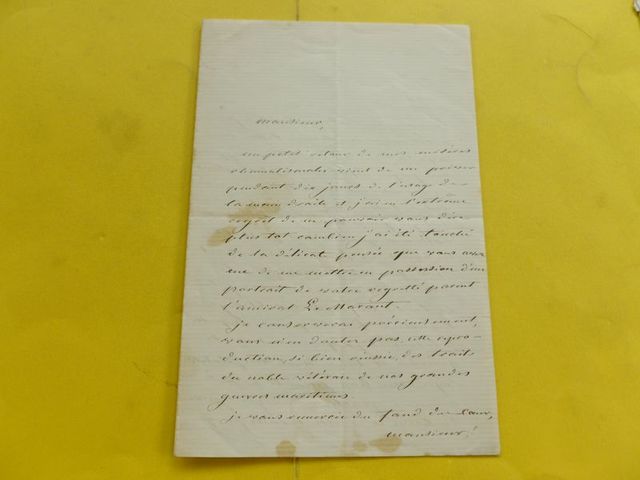 Monsieur,
un petit retour de mes misères
rhumatismales vient de me priver
pendant dix jours de l'usage de
la main droite et j'ai eu l'extrême
regret de ne pouvoir vous dire
plus tot combien j'ai été touché
de la délicate pensée que vous avez
eue de me mettre en possession d'un
portrait de votre regretté parent
l'amiral Le Marant.
je conserverai précieusement,
vous n'en doutez pas, cette repro-
duction, si bien réussie, des traits
du noble vétéran de nos grandes
guerres maritimes.
je vous remercie du fond du cœur,
monsieur,